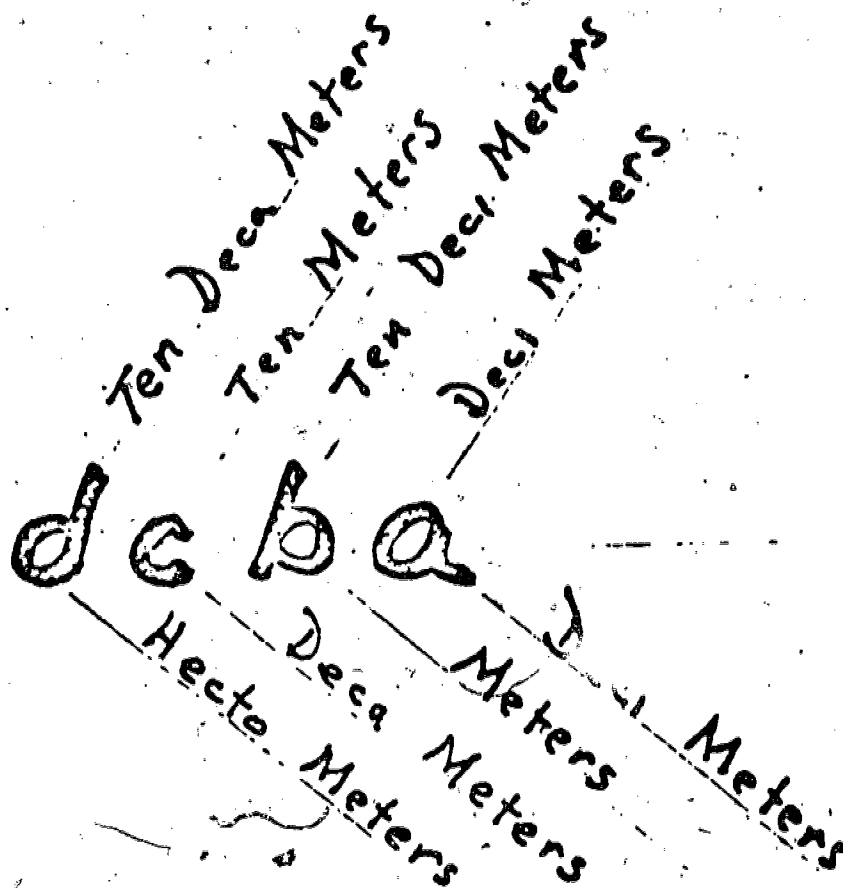 Ten Deca Meters
Ten Meters
Ten Deci Meters
Deci Meters
d c b a
Hecto Meters
Deca Meters
Meters
Meters